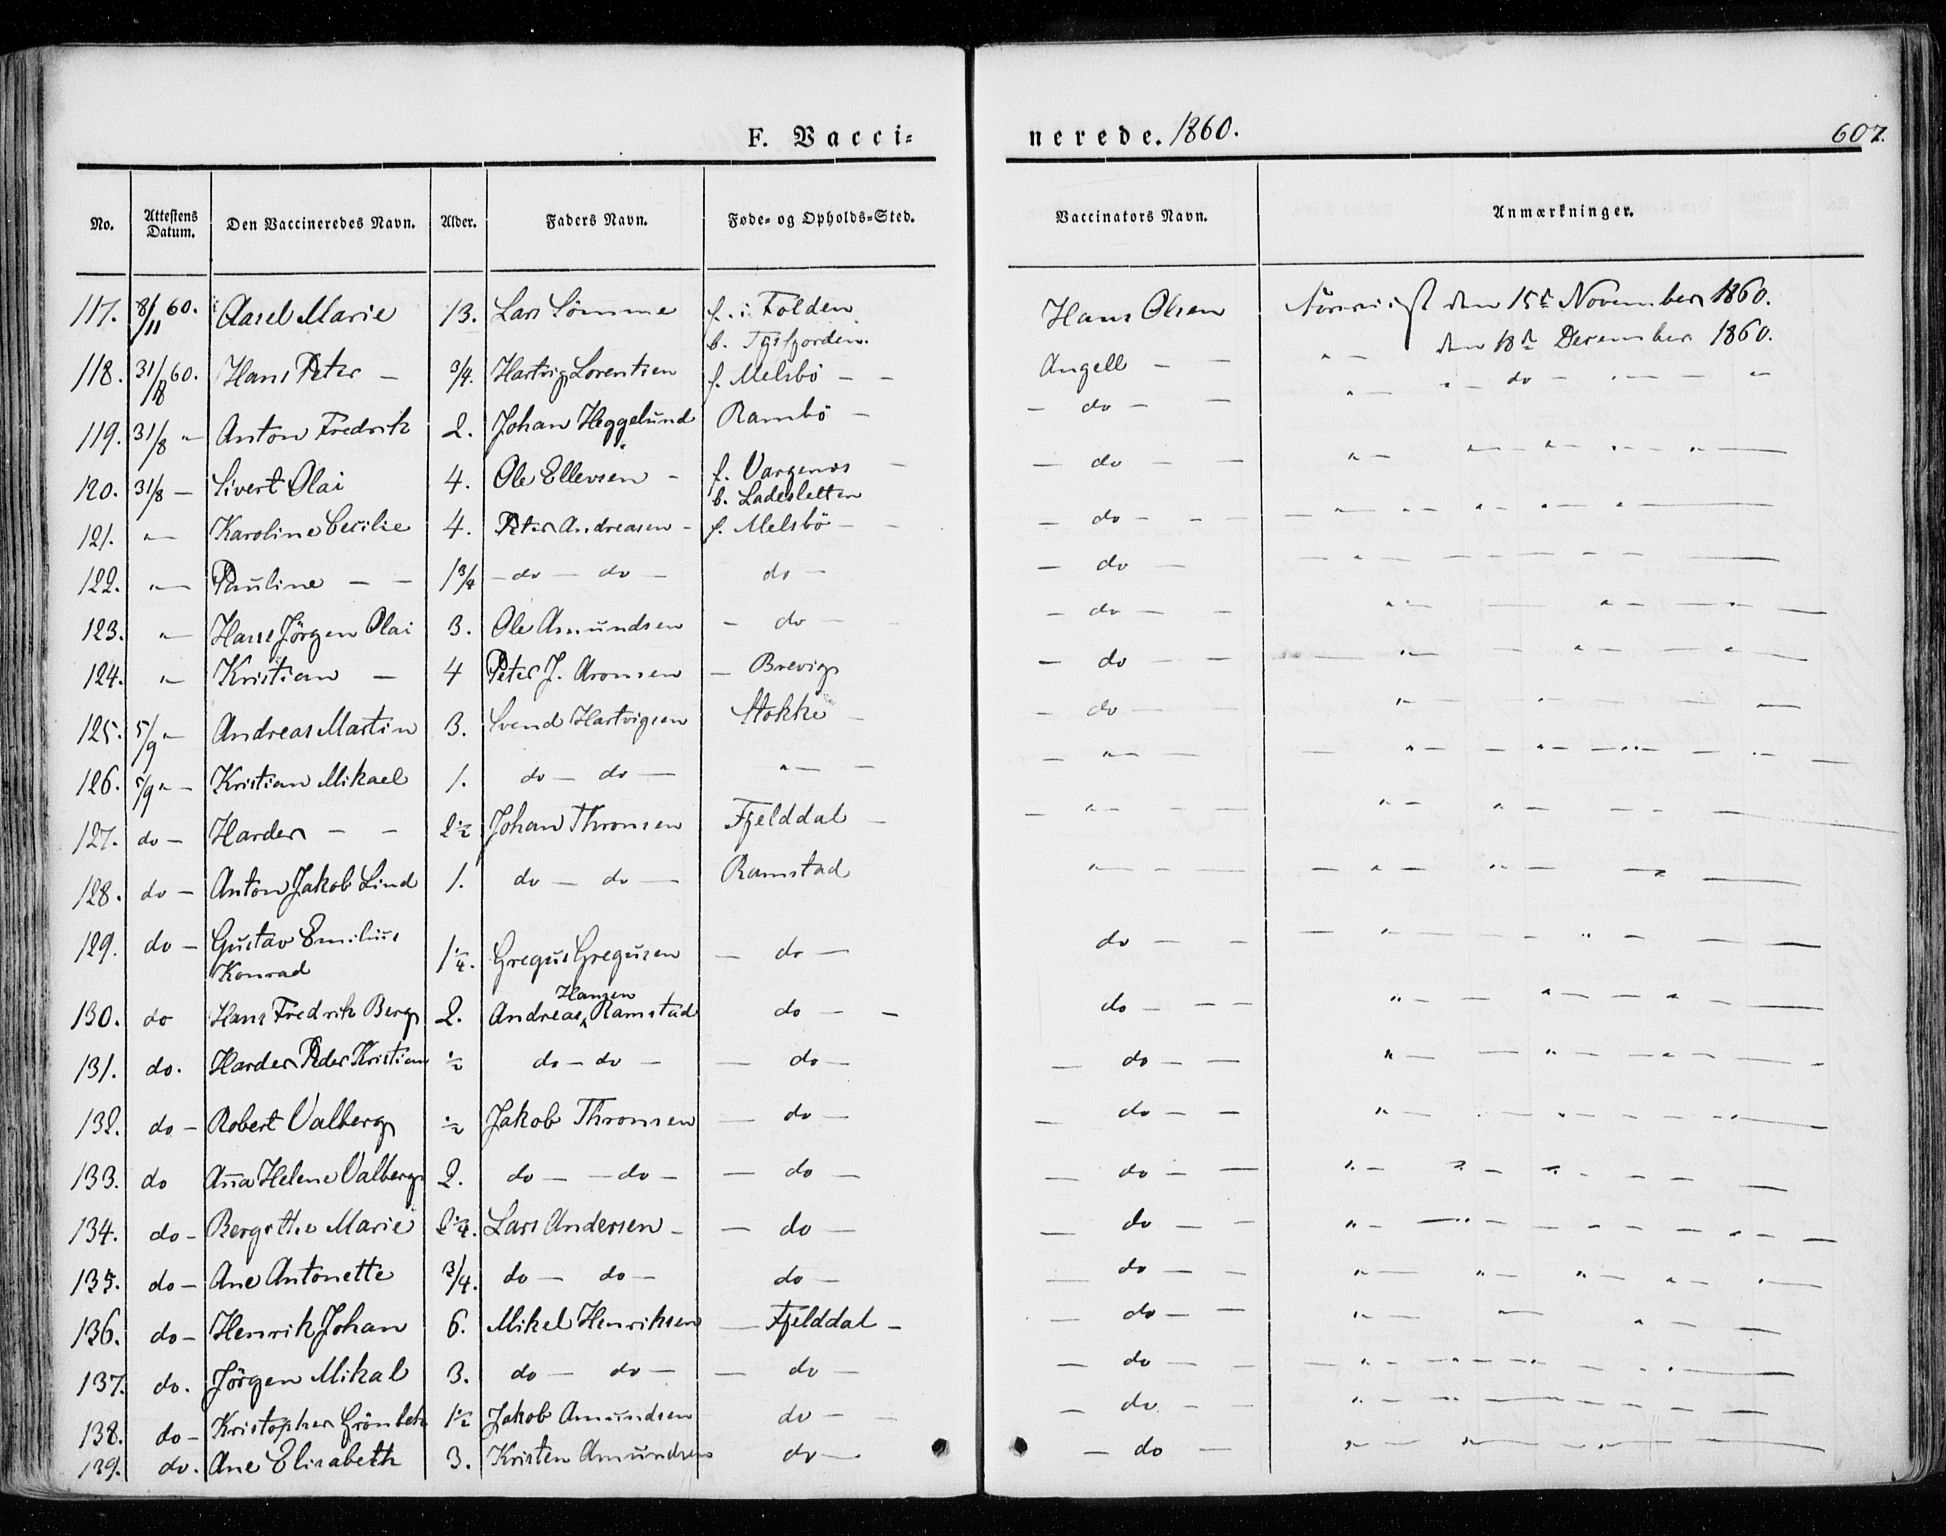 F. Vacci=
nerede. 1860.
607.
No. Attestens Datum. Den Vaccineredes Navn. Alder. Faders Navn. Føde- og Opholds-Sted. Vaccinators Navn. Anmærkninger.
117. 8/11 60. Aasel Marie 13. Lars Sømme f. i Folden Hans Olsen den 15de November 1860.
b. Tysfjorden. den 18de December 1860.
118. 31/8 60. Hans Peter - 3/4. Hartvig Lorentsen f. Melsbö - - Angell - - " - " - do - " - - "
119. 31/8 " Anton Fredrik 2. Johan Heggelund Rambö - - do - -
120. 31/8 - Sivert Olai 4. Ole Ellevsen - f. Vargenes - - do - -
b. Ladesletten
121. " - Karoline Cecilie 4. Peter Andreasen - f. Melsbö - - - do - - -
122. " - Pauline - - 1 3/4 - do - do - do - - do -
123. " - Hans Jörgen Olai 3. Ole Amundsen - do - - do - -
124. " - Kristian - 4 Peter J. Aronsen - Brevig - do - -
125. 5/9 " - Andreas Martin 3. Svend Hartvigsen Stokke - - do -
126. 5/9 " - Kristian Mikael 1. do - do - " - - - " - -
127. do - Harder - - 2 1/2 Johan Thronsen Fjelddal - - " - -
128. do - Anton Jakob Lind 1. do - do - Ramstad " - -
129. do - Gustav Emilius
Konrad 1 1/4. Gregus Gregusen - do - do - -
130. do Hans Fredrik Berg 2. Andreas Hansen Ramstad do - - do - - -
131. do. Harder Peder Kristian 1/2 do - do - - do - - do - -
132. do - Robert Valberg 1/2 Jakob Thronsen - do - - do - -
133. do Ana Helene Valberg 2. do - - do - - do - - do - -
134. do - Bergithe Marie 2 1/4. Lars Andersen - - do - - do - -
135. do - Ane Antonette 3/4. do - do - do - - do - -
136. do - Henrik Johan 6. Mikel Henriksen - Fjelddal - - do - -
137. do. Jörgen Mikal 3. do - do - - do - - do - -
138. do - Kristopher Grönbek 1 1/2 Jakob Amundsen do - - - do - -
139. do. Ane Elisabeth 3. Kristen Amundsen do - - do -